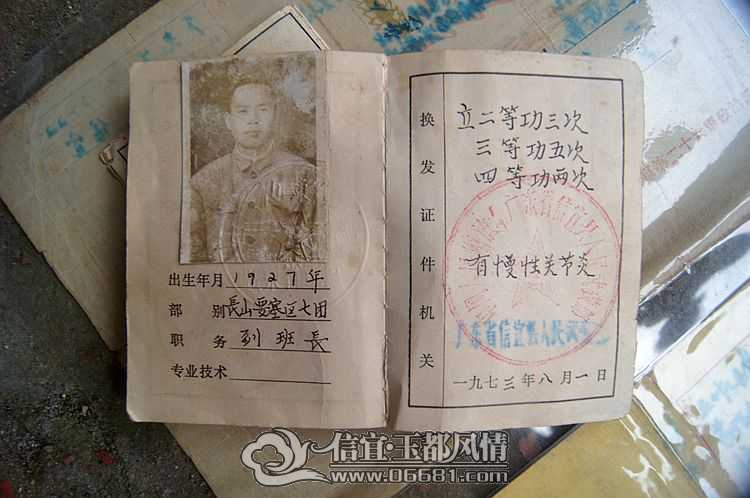 出生年月 1927年
部别 長山要塞区七团
职务 副班長
专业技术
换发证件机关
立二等功三次
三等功五次
四等功两次
有慢性关节炎
广东省信宜县人民武
一九七三年八月一日
信宜·玉都风情
www.06681.com